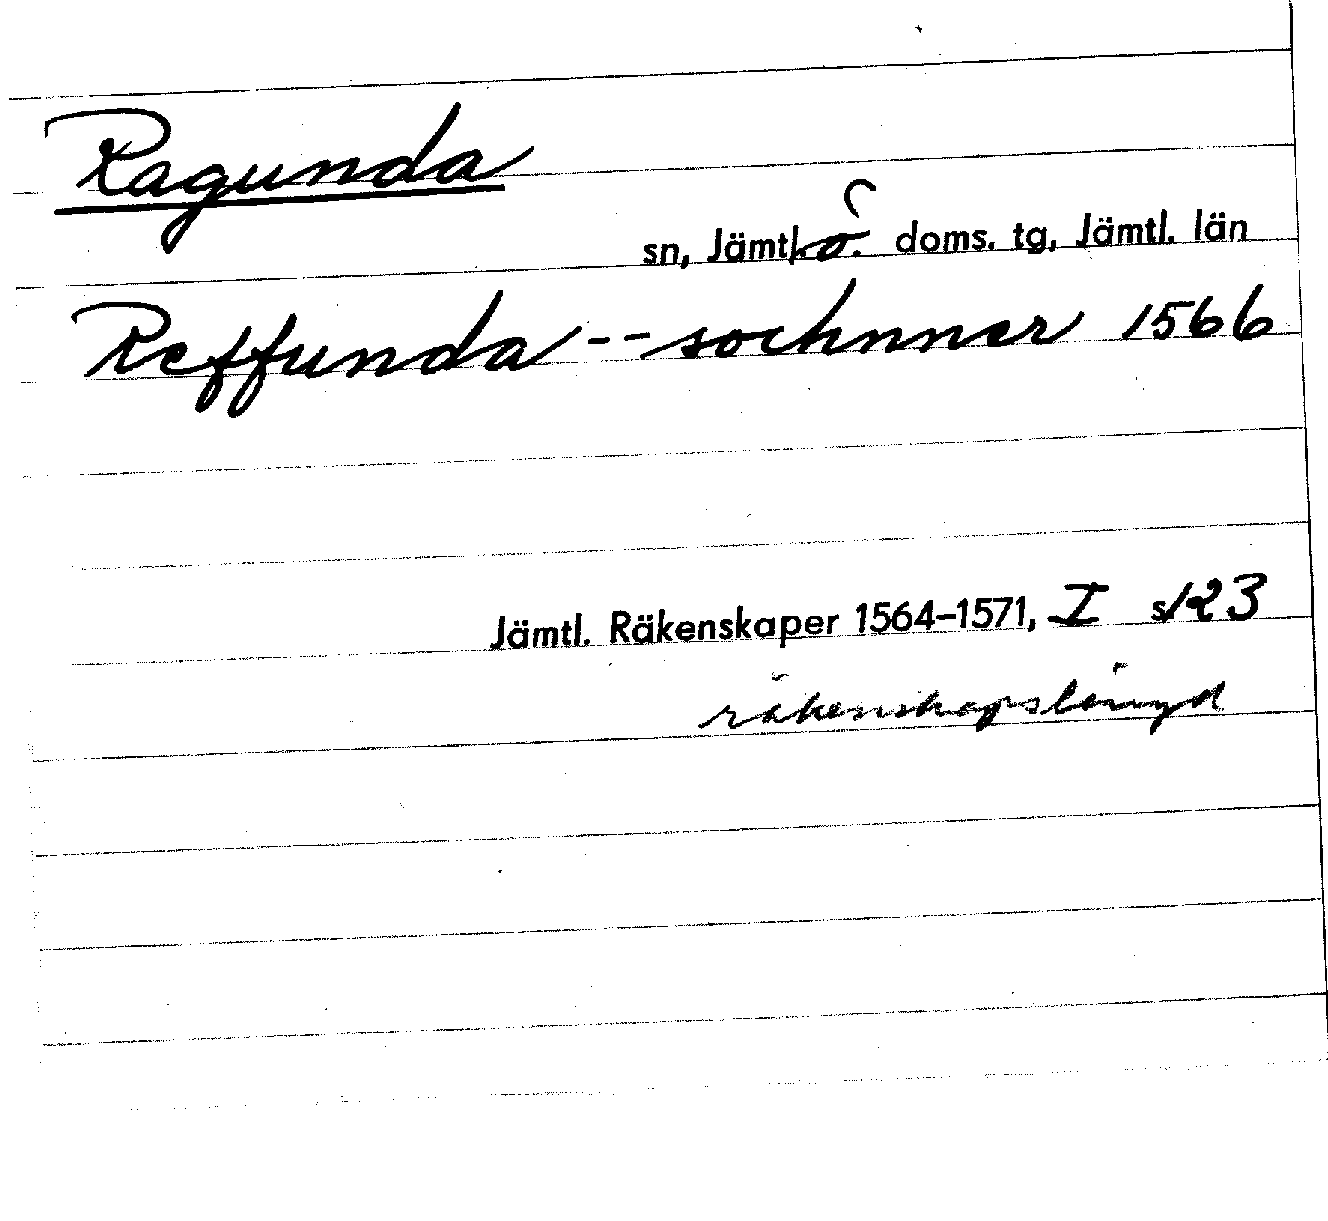 Ragunda
sn, Jämtl. ö. doms. tg, Jämtl. län
Reffunda -- sochnner 1566
Jämtl. Räkenskaper 1564-1571, I s 123
räkenskapslängd